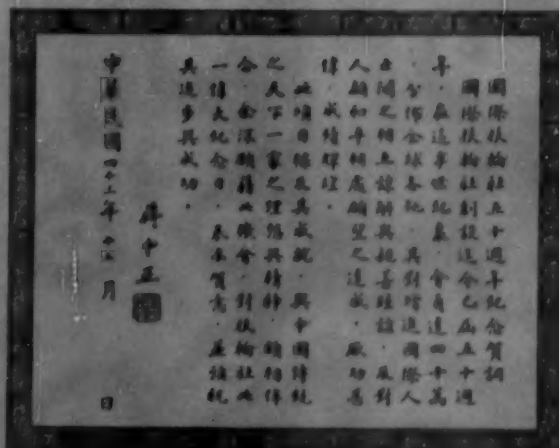 國際扶輪社五十週年紀念賀詞
國際扶輪社創設迄今已屆五十週
年．飲譽寰區．會員達四十萬
．分佈全球各地．其對增進國際人
士間之相互諒解與親善．以及對
人類和平相處願望之達成．厥功甚
偉．成績輝煌．
此項目標及其成就．與中國傳統
之天下一家之理想與精神．頗相符
合．余深願藉此機會．對扶輪社此
一偉大紀念日．表示賀意．並預祝
其進步與成功．
蔣中正
中華民國四十三年十二月　日